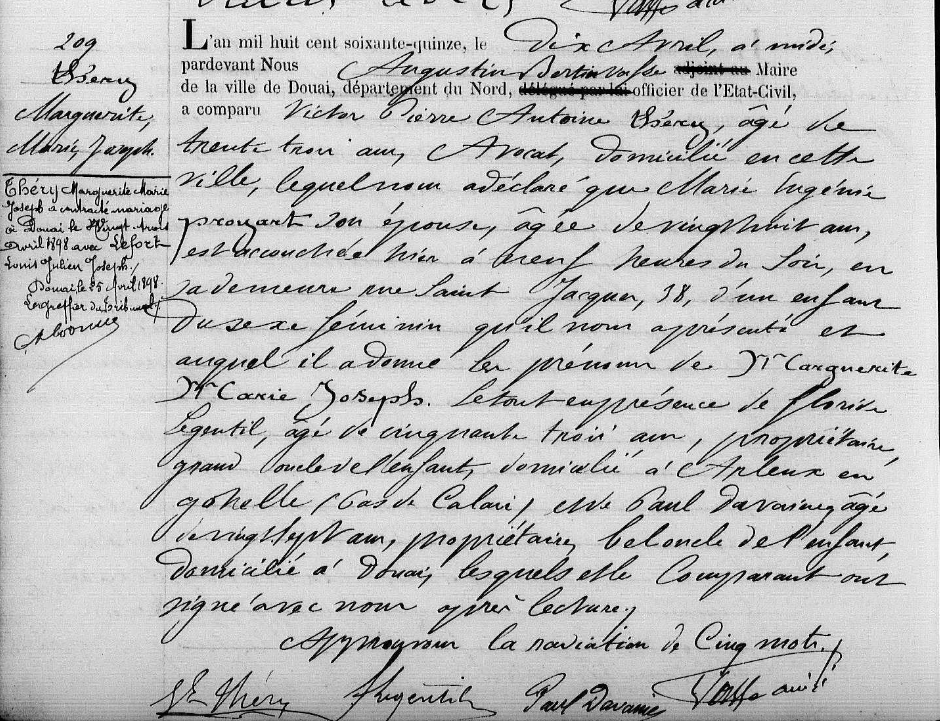 209
Théry
Marguerite,
Marie, Joseph.
Théry Marguerite Marie
Joseph a contracté mariage
à Douai le Vingt trois
Avril 1898 avec Lefort
Louis Julien Joseph./
Douai le 25 Avril 1898.
Le greffier du Tribunal
L'an mil huit cent soixante-quinze, le Dix Avril, à midi,
pardevant Nous Augustin Bertin Vasse adjoint au Maire
de la ville de Douai, département du Nord, délégué par lui officier de l'Etat-Civil,
a comparu Victor Pierre Antoine Théry, âgé de
trente trois ans, Avocat, domicilié en cette
ville, lequel nous a déclaré que Marie Eugénie
prouvart son épouse, âgée de vingt huit ans,
est accouchée hier à neuf heures du Soir, en
sa demeure rue Saint Jacques, 38, d'un enfant
du sexe féminin qu'il nous a présenté et
auquel il a donné les prénoms de Marguerite
Marie Joseph. Le tout en présence de floride
Legentil, âgé de cinquante trois ans, propriétaire,
grand oncle de l'enfant, domicilié à Arleux en
gohelle (Pas de Calais) et de Paul Davaine, âgé
de vingt sept ans, propriétaire, bel oncle de l'enfant,
domicilié à Douai, lesquels et le Comparant ont
signé avec nous après lecture,
Approuvons la radiation de Cinq mots./
Vr Théry Legentil Paul Davaine Vasse ainé